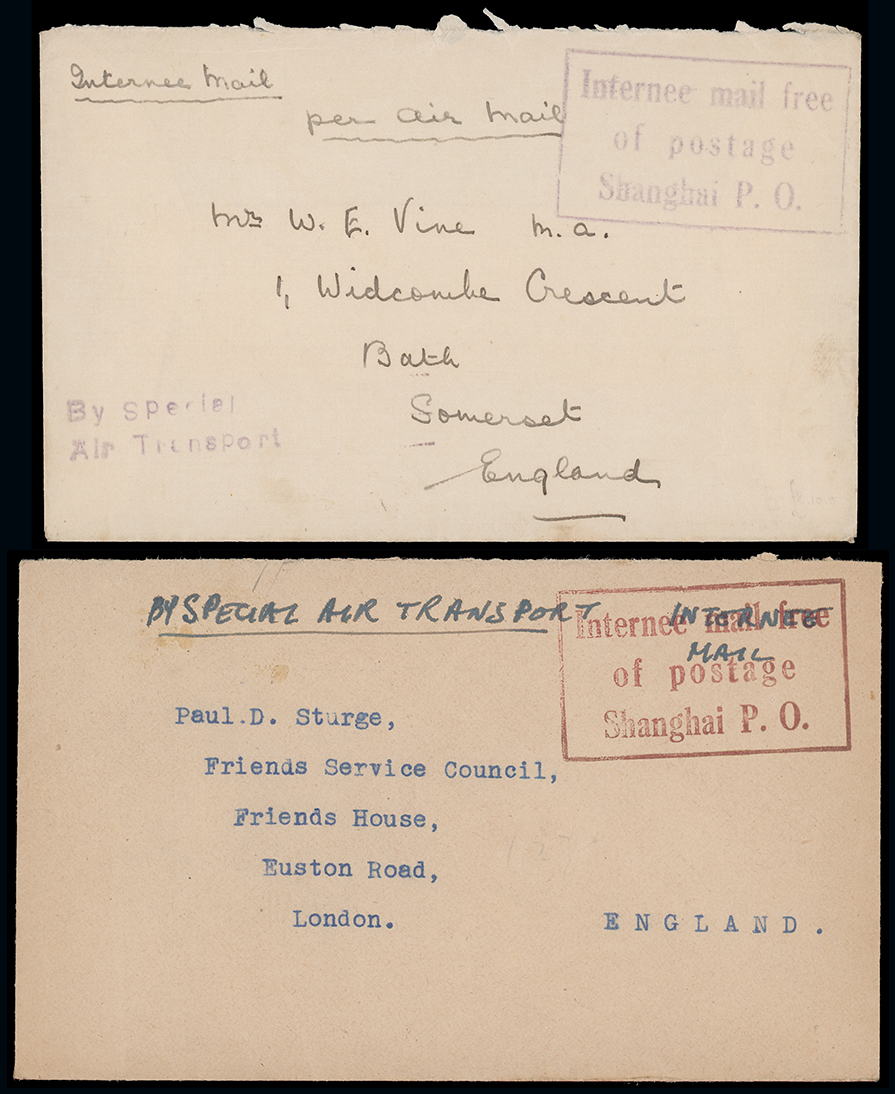 Internee Mail
per Air Mail
Internee mail free
of postage
Shanghai P. O.
Mrs W. E. Vine M.A.
1, Widcombe Crescent
Bath
Somerset
England
By Special
Air Transport
BY SPECIAL AIR TRANSPORT
INTERNEE
MAIL
Internee mail free
of postage
Shanghai P. O.
Paul.D. Sturge,
Friends Service Council,
Friends House,
Euston Road,
London.
ENGLAND.